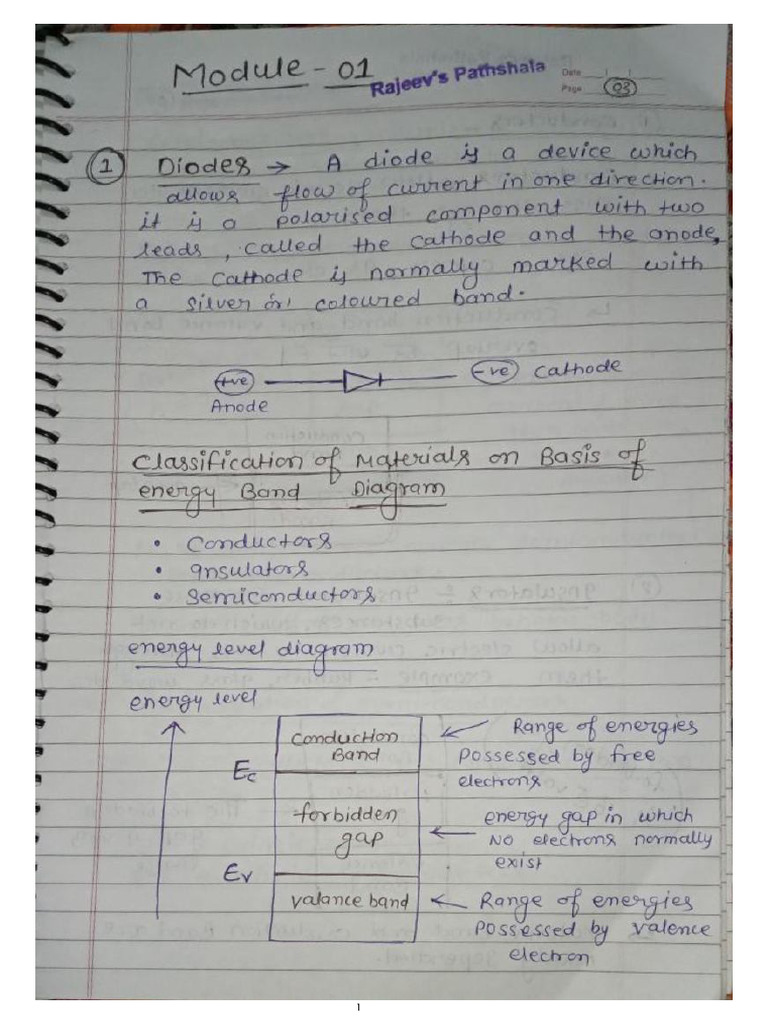 Module - 01
Rajeev's Pathshala
Date
Page 03
1 Diodes → A diode is a device which
allows flow of current in one direction.
it is a polarised component with two
leads, called the cathode and the anode,
The cathode is normally marked with
a silver or coloured band.
+ve -ve Cathode
Anode
Classification of Materials on Basis of
energy Band Diagram
• Conductors
• Insulators
• Semiconductors
energy level diagram
energy level
Conduction Band
Ec
forbidden gap
Ev
valance band
← Range of energies
possessed by free
electrons
← energy gap in which
NO electrons normally
exist
← Range of energies
possessed by valence
electron
1